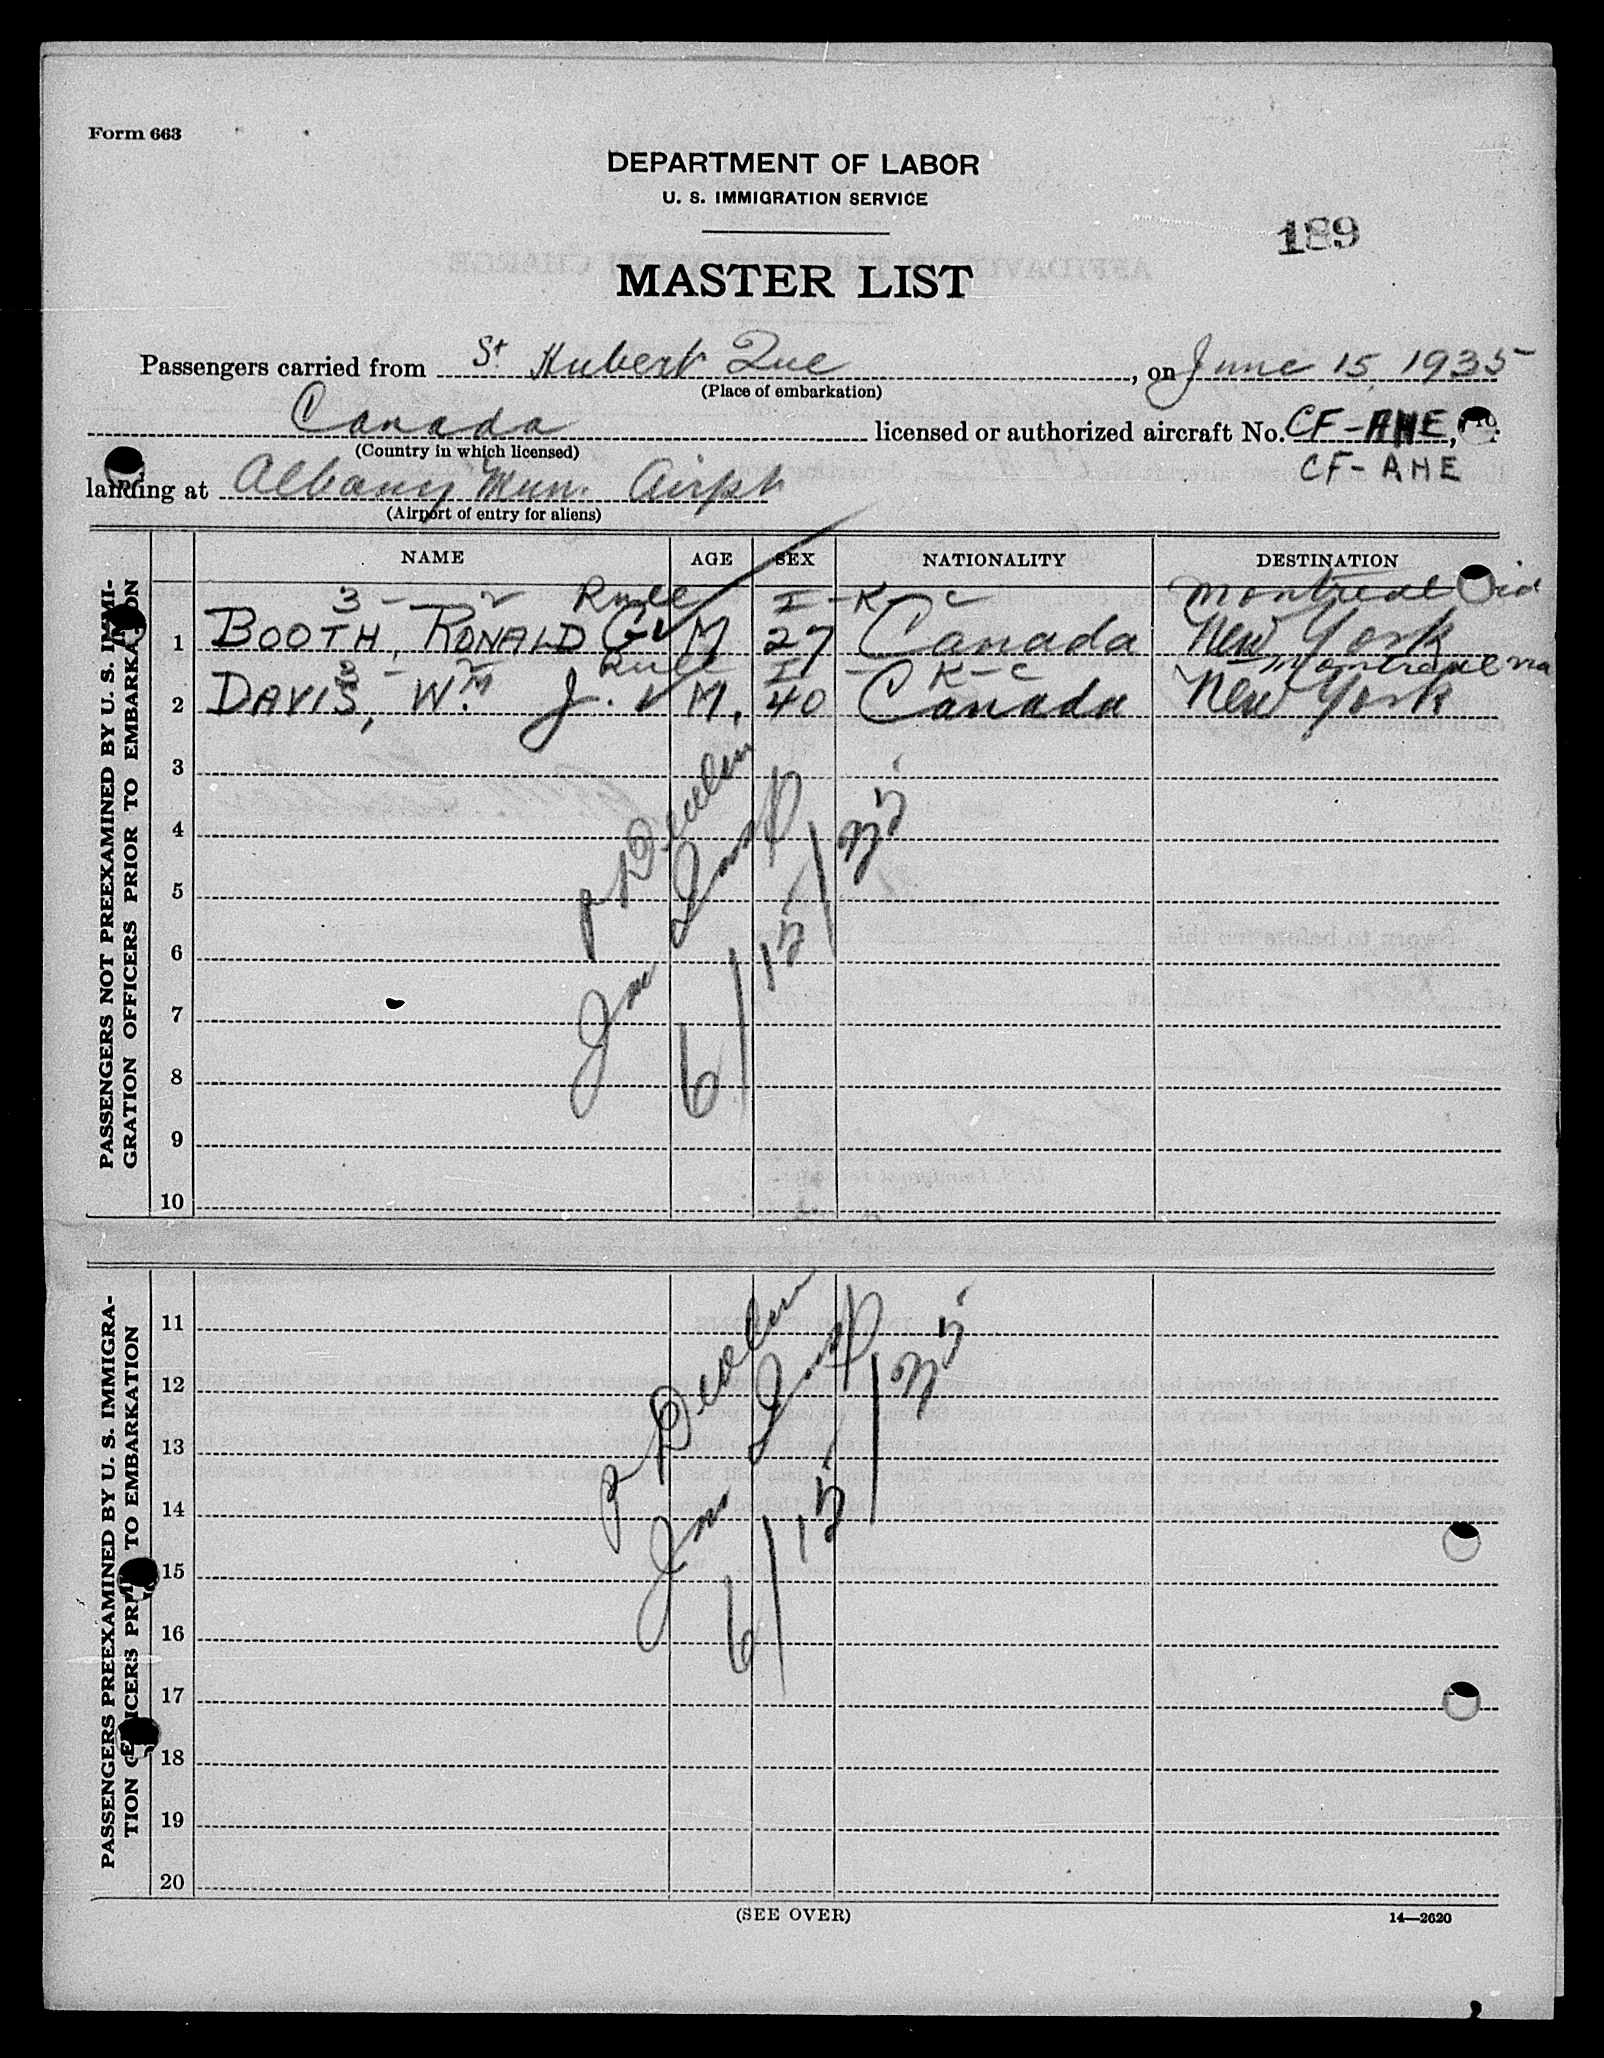 Form 663
DEPARTMENT OF LABOR
U. S. IMMIGRATION SERVICE
189
MASTER LIST
Passengers carried from St Hubert Que, on June 15, 1935
(Place of embarkation)
Canada licensed or authorized aircraft No. CF-AHE,
(Country in which licensed)
CF-AHE
landing at Albany Mun. Airpt
(Airport of entry for aliens)
NAME AGE SEX NATIONALITY DESTINATION
3 - 2 Rule I - K - C Montreal via
1 BOOTH, RONALD G. M 27 Canada New York
3 - 2 Rule I - K - C Montreal via
2 DAVIS, Wm J. M. 40 Canada New York
3
4
5
6
7
8
9
10
PASSENGERS NOT PREEXAMINED BY U. S. IMMI-
GRATION OFFICERS PRIOR TO EMBARKATION
P Devlin
Imm Insp
6/15/35
11
12
13
14
15
16
17
18
19
20
PASSENGERS PREEXAMINED BY U. S. IMMIGRA-
TION OFFICERS PRIOR TO EMBARKATION
P Devlin
Imm Insp
6/15/35
(SEE OVER)
14—2620